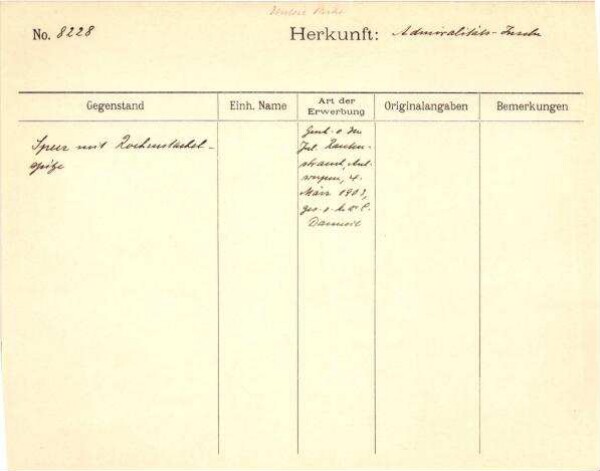 No. 8228
Herkunft: Admiralitäts-Inseln
Gegenstand
Einh. Name
Art der Erwerbung
Originalangaben
Bemerkungen
Speer mit Rochenstachel-
spitze
Gesch. v. Hrn
Jul.
strauch, Ant-
werpen, 4.
März 1907,
ges. v.